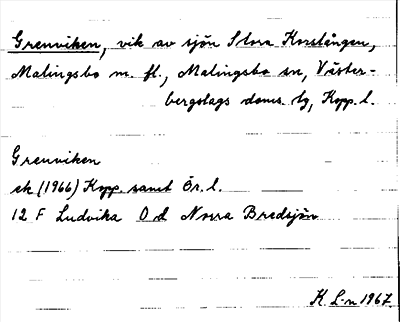 Grenviken, vik av sjön Stora Korslången,
Malingsbo m. fl., Malingsbo sn, Väster-
bergslags doms. tg, Kopp. l.
Grenviken
ek (1966) Kopp. samt Ör. l.
12 F Ludvika O d Norra Bredsjön
K. L-n 1967.